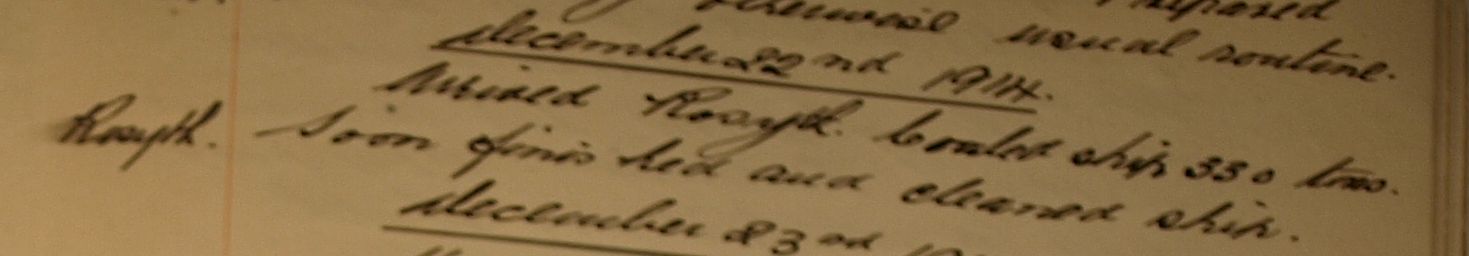 otherwise usual routine.
December 22nd 1914.
Arrived Rosyth. Coaled ship 330 tons.
Rosyth. Soon finished and cleaned ship.
December 23rd 19